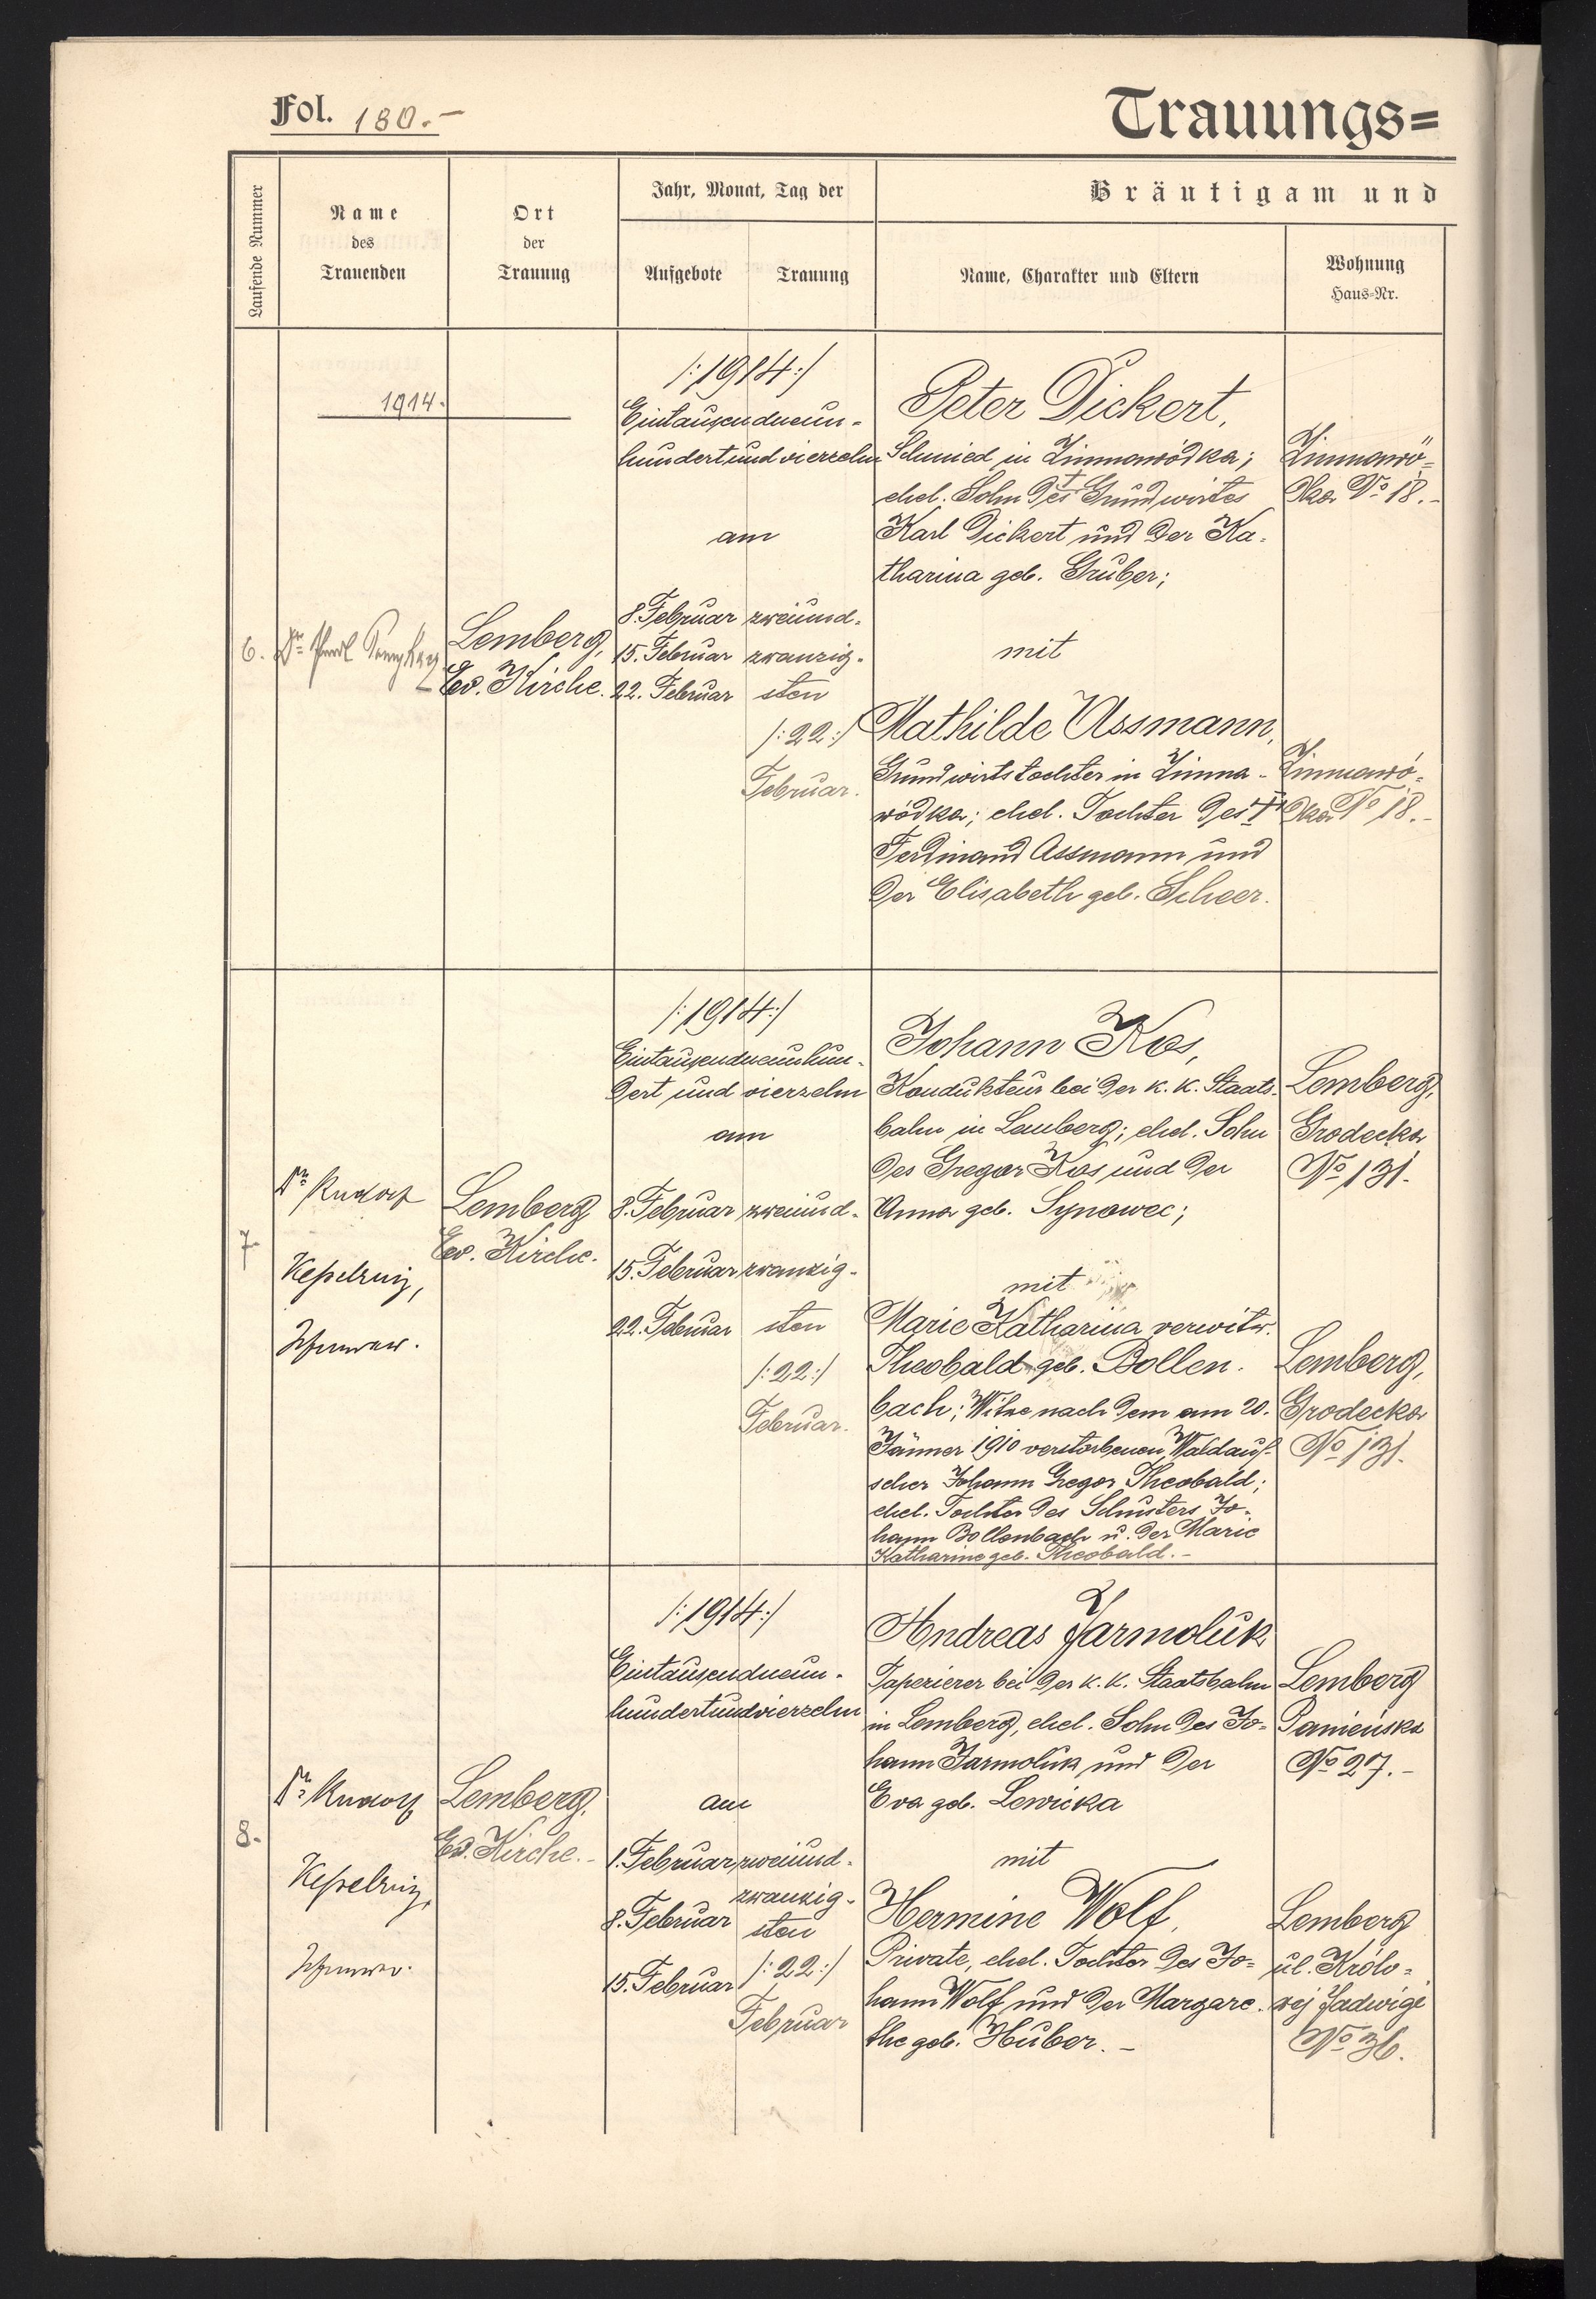 Fol. 180.-
Trauungs=
Laufende Nummer
Name
des
Trauenden
Ort
der
Trauung
Jahr, Monat, Tag der
Aufgebote
Trauung
Bräutigam und
Name, Charakter und Eltern
Wohnung
Haus-Nr.
1914.
6.
Dr.
Lemberg,
Ev. Kirche.
/:1914:/
Eintausendneun-
hundertundvierzehn
am
8. Februar
15. Februar
22. Februar
zweiund-
zwanzig-
sten
/:22:/
Februar.
Peter Dickert,
Schmied in Zimnawódka;
ehel. Sohn des † Grundwirtes
Karl Dickert und der Ka-
tharina geb. Gruber;
mit
Mathilde Assmann,
Grundwirtstochter in Zimna-
wódka; ehel. Tochter des †
Ferdinand Assmann und
der Elisabeth geb. Scheer.
Zimnawó-
dka No 18.-
Zimnawó-
dka No 18.-
7.
Dr. Rudolf
Kesselring,
Pfarrer.
Lemberg
Ev. Kirche.
/:1914:/
Eintausendneunhun-
dert und vierzehn
am
8. Februar
15. Februar
22. Februar
zweiund-
zwanzig-
sten
/:22:/
Februar.
Johann Kos,
Kondukteur bei der k. k. Staats-
bahn in Lemberg; ehel. Sohn
des Gregor Kos und der
Anna geb. Synowec;
mit
Marie Katharina verwitw.
Theobald geb. Bollen-
bach; Witwe nach dem am 20.
Jänner 1910 verstorbenen Waldauf-
seher Johann Gregor Theobald;
ehel. Tochter des Schusters Jo-
hann Bollenbach u. der Marie
Katharine geb. Theobald.-
Lemberg,
Grodecka
No 131.
Lemberg,
Grodecka
No 131.
8.
Dr. Rudolf
Kesselring,
Pfarrer.
Lemberg,
Ev. Kirche.-
/:1914:/
Eintausendneun-
hundertundvierzehn
am
1. Februar
8. Februar
15. Februar
zweiund-
zwanzig-
sten
/:22:/
Februar
Andreas Jarmoluk
Taperierer bei der k. k. Staatsbahn
in Lemberg, ehel. Sohn des Jo-
hann Jarmoluk und der
Eva geb. Lewicka
mit
Hermine Wolf,
Private, ehel. Tochter des Jo-
hann Wolf und der Margare-
the geb. Huber.-
Lemberg
Panieńska
No 27.-
Lemberg
ul. Królo-
wej Jadwigi
No 36.